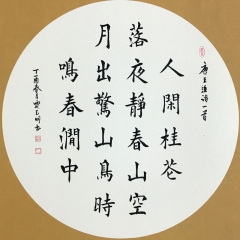 唐王維詩一首
人閑桂花
落夜静春山空
月出驚山鳥時
鳴春澗中
丁酉春月